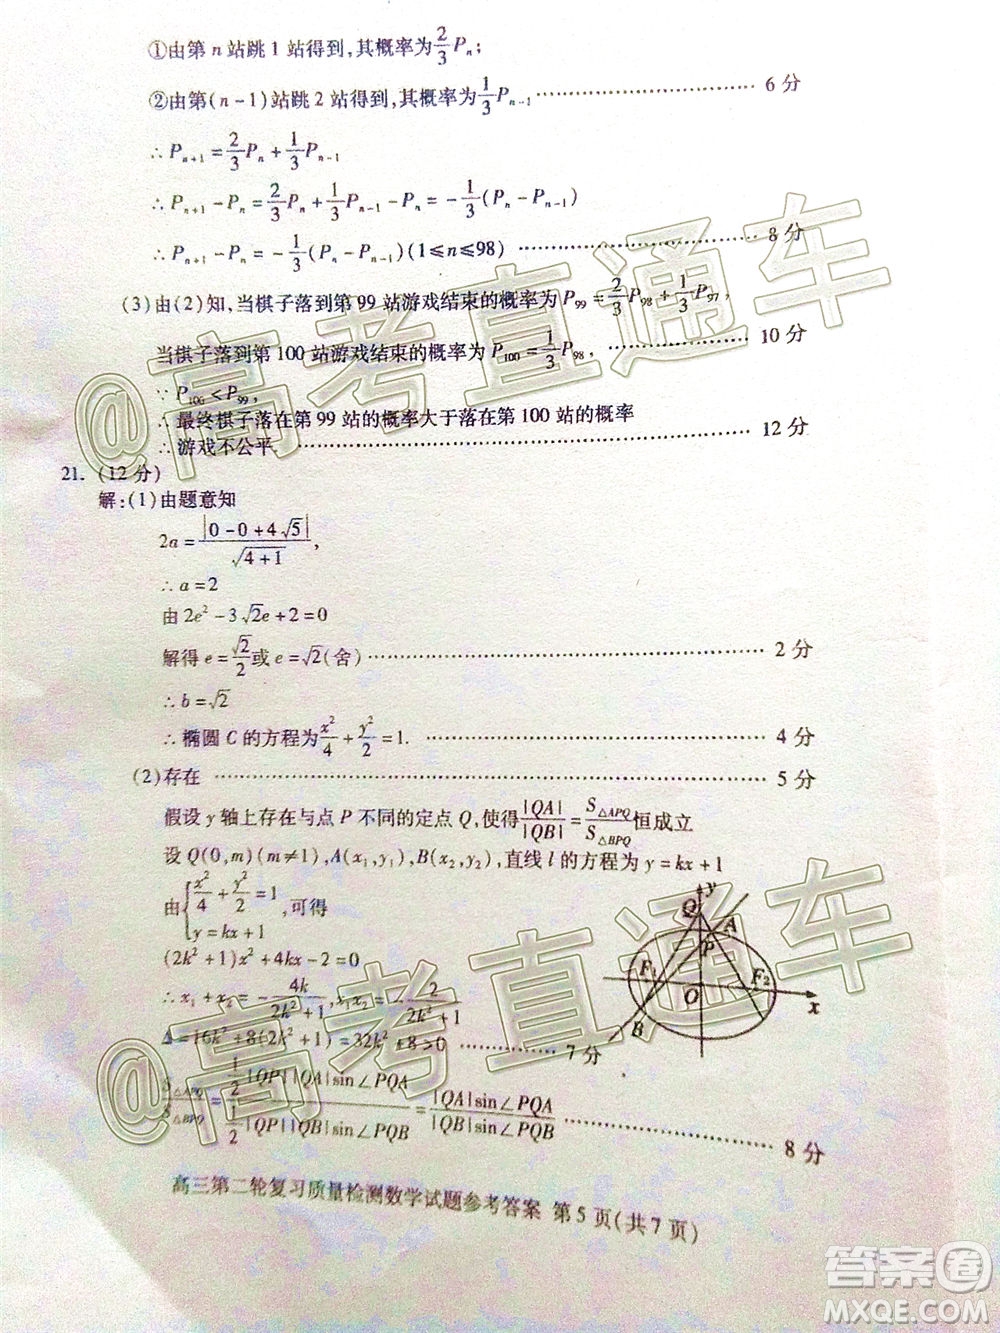 ①由第n站跳1站得到,其概率为2/3 Pₙ;
②由第(n-1)站跳2站得到,其概率为1/3 Pₙ₋₁ ⋯⋯ 6分
∴Pₙ₊₁=2/3 Pₙ+1/3 Pₙ₋₁
∴Pₙ₊₁-Pₙ=2/3 Pₙ+1/3 Pₙ₋₁-Pₙ=-1/3(Pₙ-Pₙ₋₁)
∴Pₙ₊₁-Pₙ=-1/3(Pₙ-Pₙ₋₁)(1≤n≤98) ⋯⋯ 8分
(3)由(2)知,当棋子落到第99站游戏结束的概率为P₉₉=2/3 P₉₈+1/3 P₉₇,
当棋子落到第100站游戏结束的概率为P₁₀₀=1/3 P₉₈, ⋯⋯ 10分
∵P₁₀₀<P₉₉,
∴最终棋子落在第99站的概率大于落在第100站的概率
∴游戏不公平. ⋯⋯ 12分
21.(12分)
解:(1)由题意知
2a=|0-0+4√5|/√(4+1),
∴a=2
由2e²-3√2e+2=0
解得e=√2/2或e=√2(舍) ⋯⋯ 2分
∴b=√2
∴椭圆C的方程为x²/4+y²/2=1. ⋯⋯ 4分
(2)存在 ⋯⋯ 5分
假设y轴上存在与点P不同的定点Q,使得|QA|/|QB|=S△APQ/S△BPQ恒成立
设Q(0,m)(m≠1),A(x₁,y₁),B(x₂,y₂),直线l的方程为y=kx+1
由{x²/4+y²/2=1
y=kx+1,可得
(2k²+1)x²+4kx-2=0
∴x₁+x₂=-4k/(2k²+1),x₁x₂=-2/(2k²+1)
Δ=16k²+8(2k²+1)=32k²+8>0 ⋯⋯ 7分
S△APQ/S△BPQ=(1/2|QP||QA|sin∠PQA)/(1/2|QP||QB|sin∠PQB)=|QA|sin∠PQA/|QB|sin∠PQB ⋯⋯ 8分
y
Q
A
P
F₁
F₂
O
x
B
高三第二轮复习质量检测数学试题参考答案 第5页(共7页)
@高考直通车
@高考直通车
答案圈
MXQE.COM